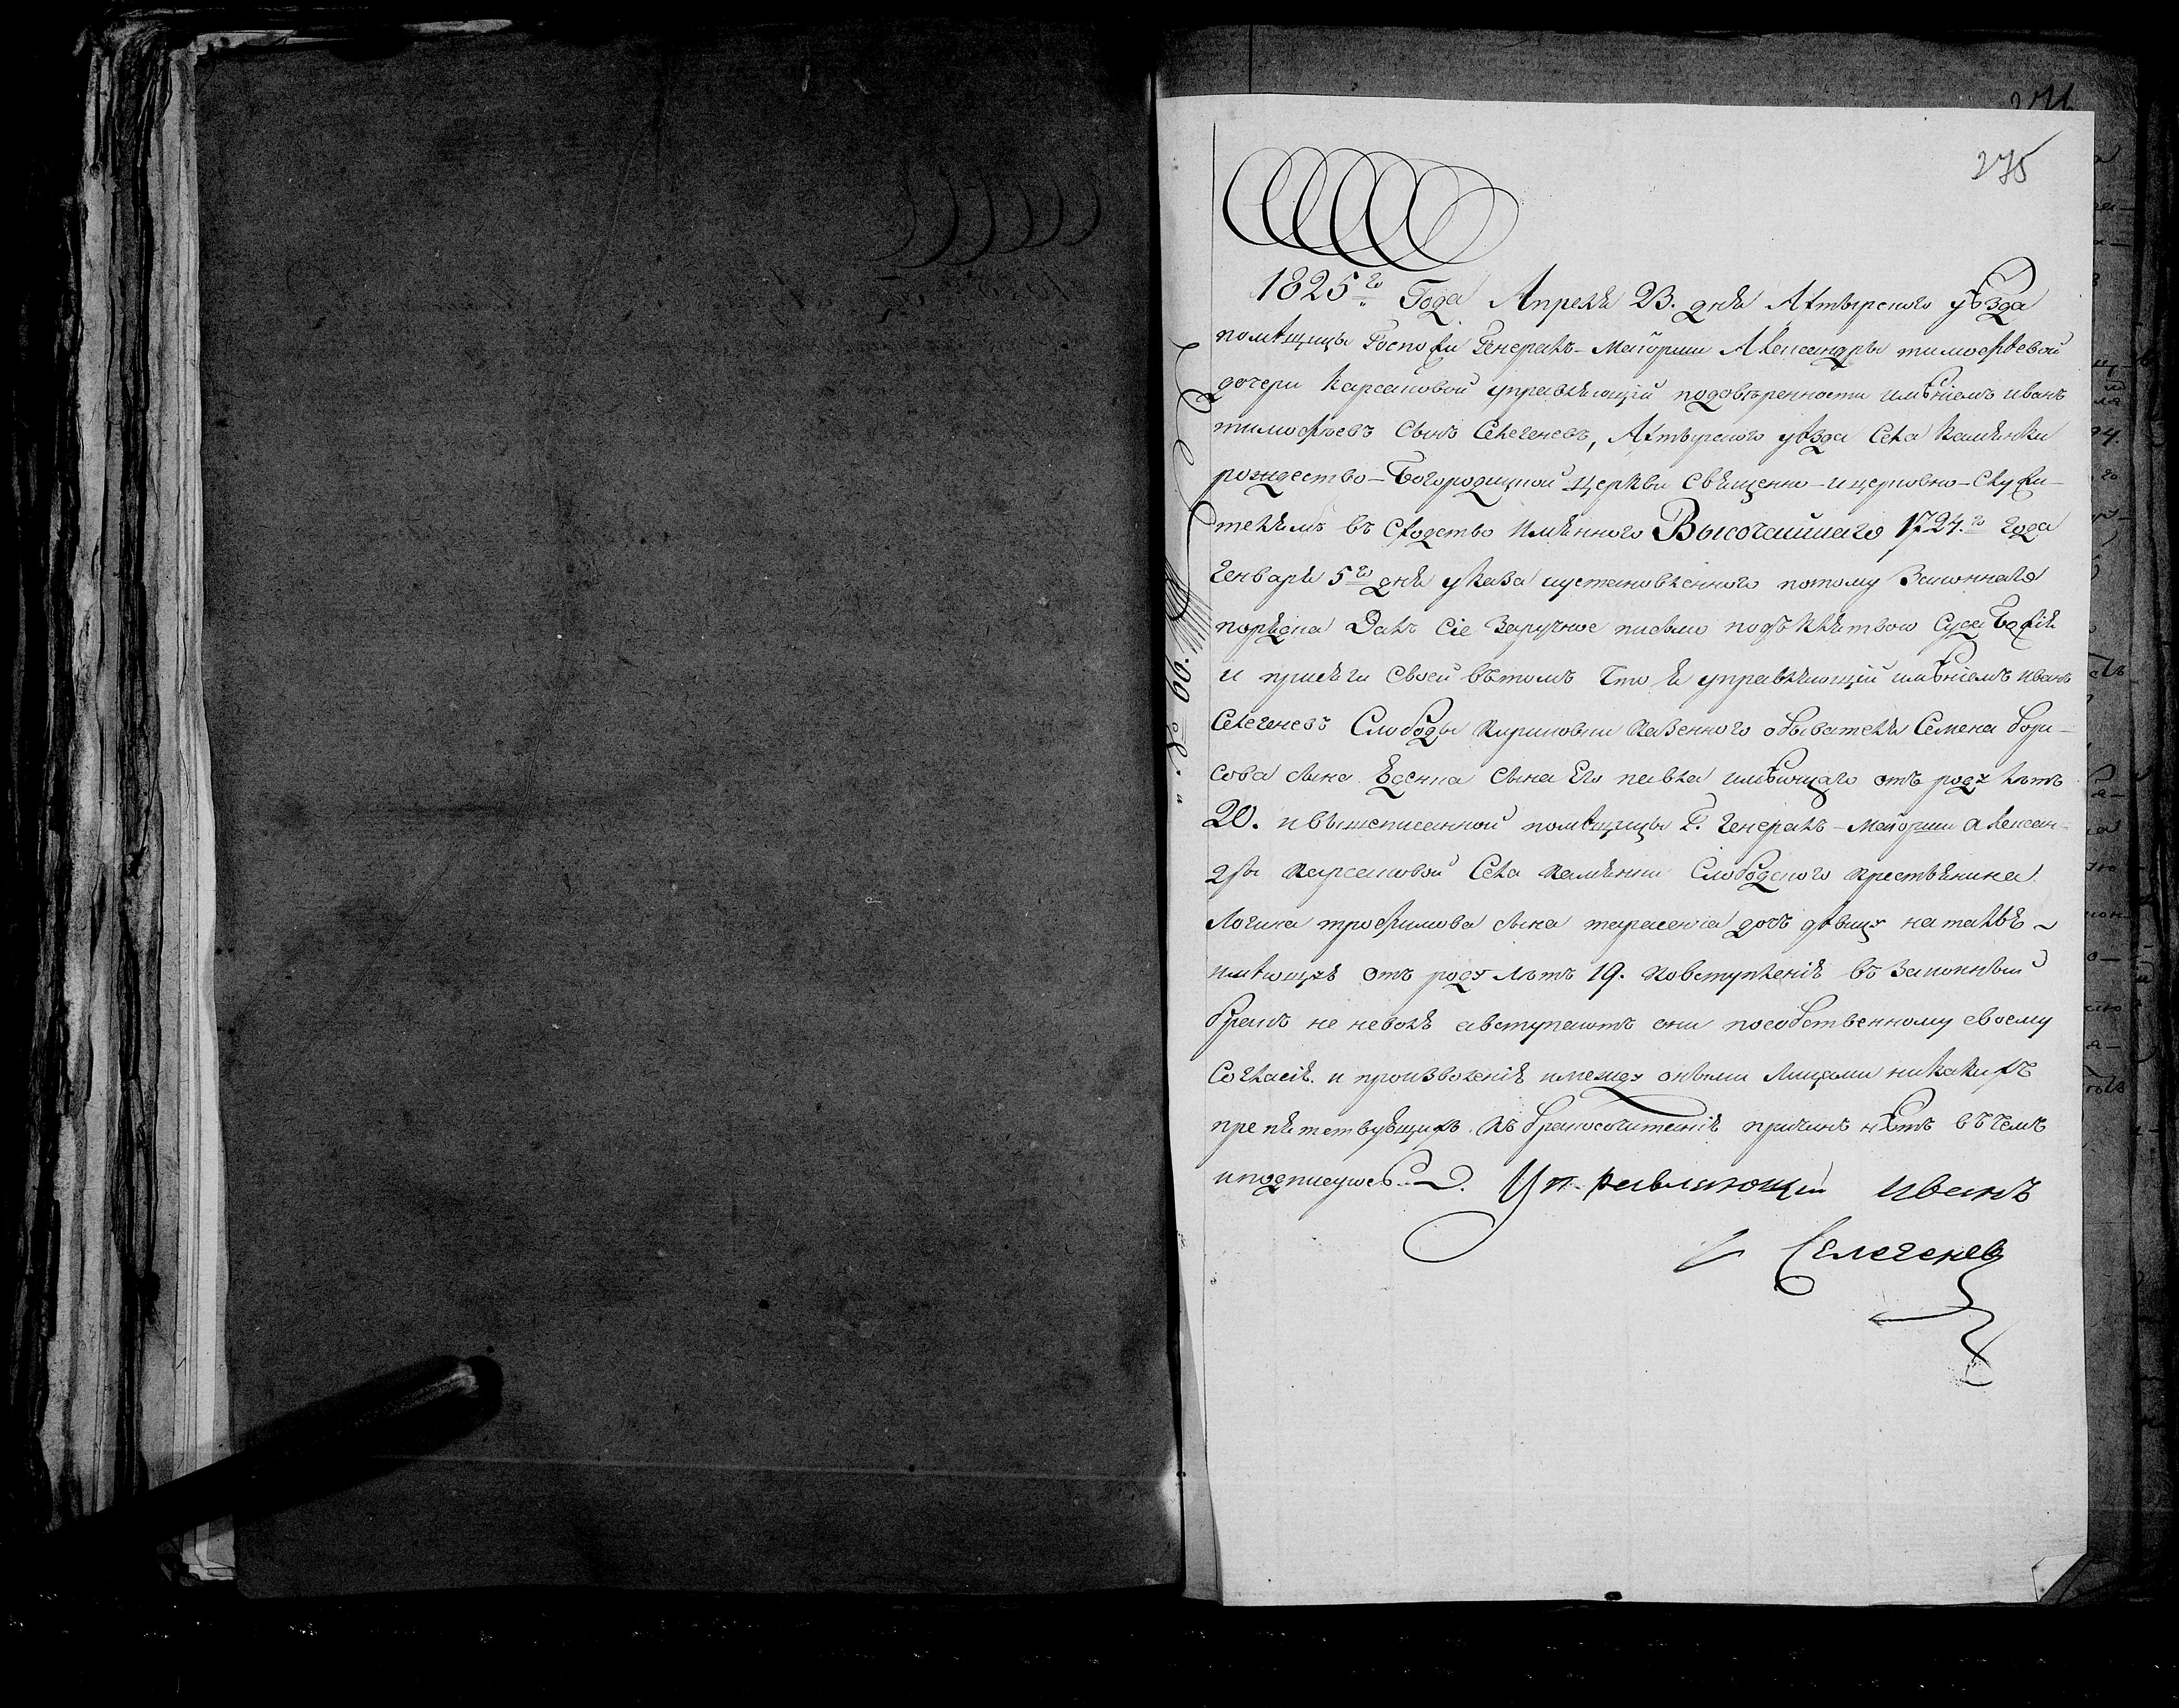 275
№ 66.
1825го Года Апреля 23. дня Ахтырского уѣзда
помѣщицы Госпожи Генералъ-Маіорши Александры тимофѣевой
дочери Карсаковой управляющій подовѣренности имѣніемъ иванъ
тимофѣевъ сынъ Селегеневъ, Ахтырского уѣзда села Камянки
рождество-Богородицкой церкви священно-ицерковно-служи-
телямъ въ сходство имянного Высочайшаго 1724.го года
генваря 5го дня указа иустановленного потому Законнаго
порядка Далъ сіе Заручное письмо подъ клятвою суда Божія
и присяги своей вътомъ что я управляющій имѣніемъ иванъ
Селегеневъ слободы Кириковки казенного обывателя Семена бори-
сова сына Еденка сына Его павла имѣющаго отъ роду лѣтъ
20. ивышеписанной помѣщицы Г. генералъ-Маіорши алексан-
дры карсаковой села камянки слободского крестьянина
Логина трофимова сына тарасенка дочь дѣвицу наталью
имѣющую отъ роду лѣтъ 19. ковступленію въ законный
бракъ не неволю авступаютъ они пособственному своему
согласію и произволенію имежду оными лицами никакихъ
препятствующихъ къ бракосочитанію причинъ нѣтъ въчемъ
иподписуюсь. Управляющій иванъ
Селегенев